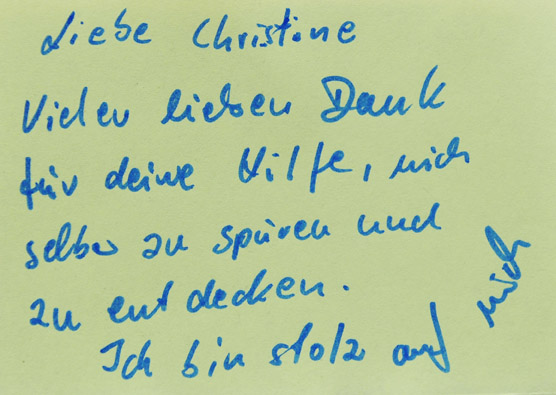 Liebe Christine
Vielen lieben Dank
für deine Hilfe, mich
selber zu spüren und
zu entdecken.
Ich bin stolz auf mich